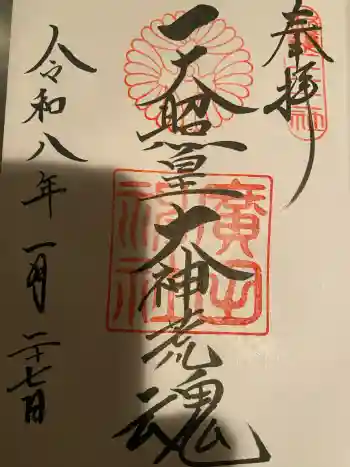 奉拝
天照皇大神荒魂
廣田
神社
令和八年一月二十七日